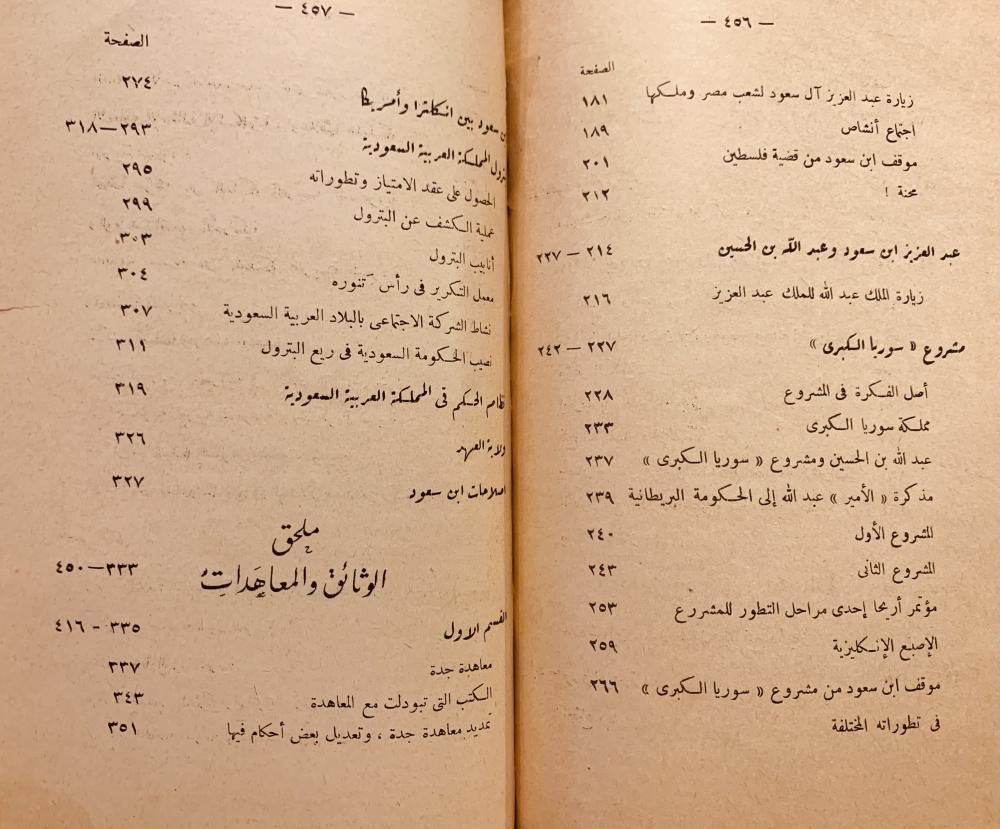 — ٤٥٦ —
الصفحة
زيارة عبد العزيز آل سعود لشعب مصر وملكها ١٨١
اجتماع أنشاص ١٨٩
موقف ابن سعود من قضية فلسطين ٢٠١
محنة ! ٢١٢
عبد العزيز ابن سعود وعبد الله بن الحسين ٢١٤ — ٢٢٧
زيارة الملك عبد الله للملك عبد العزيز ٢١٦
مشروع « سوريا الكبرى » ٢٢٧ — ٢٤٢
أصل الفكرة فى المشروع ٢٢٨
مملكة سوريا الكبرى ٢٣٣
عبد الله بن الحسين ومشروع « سوريا الكبرى » ٢٣٧
مذكرة « الأمير » عبد الله إلى الحكومة البريطانية ٢٣٩
المشروع الأول ٢٤٠
المشروع الثانى ٢٤٣
مؤتمر أريحا إحدى مراحل التطور للمشررع ٢٥٣
الإصبع الإنكليزية ٢٥٩
موقف ابن سعود من مشروع « سوريا الكبرى » ٢٦٦
فى تطوراته المختلفة
— ٤٥٧ —
الصفحة
سعود بين انكلترا وأمريكا ٢٧٤
المملكة العربية السعودية ٢٩٣—٣١٨
الحصول على عقد الامتياز وتطوراته ٢٩٥
عملية الكشف عن البترول ٢٩٩
أنابيب البترول ٣٠٣
معمل التكرير فى رأس تنوره ٣٠٤
نشاط الشركة الاجتماعى بالبلاد العربية السعودية ٣٠٧
نصيب الحكومة السعودية فى ريع البترول ٣١١
نظام الحكم فى المملكة العربية السعودية ٣١٩
ولاية العهد ٣٢٦
اصلاحات ابن سعود ٣٢٧
ملحق
الوثائق والمعاهدات ٣٣٣—٤٥٠
القسم الاول ٣٣٥ - ٤١٦
معاهدة جدة ٣٣٧
الكتب التى تبودلت مع المعاهدة ٣٤٣
تمديد معاهدة جدة ، وتعديل بعض أحكام فيها ٣٥١